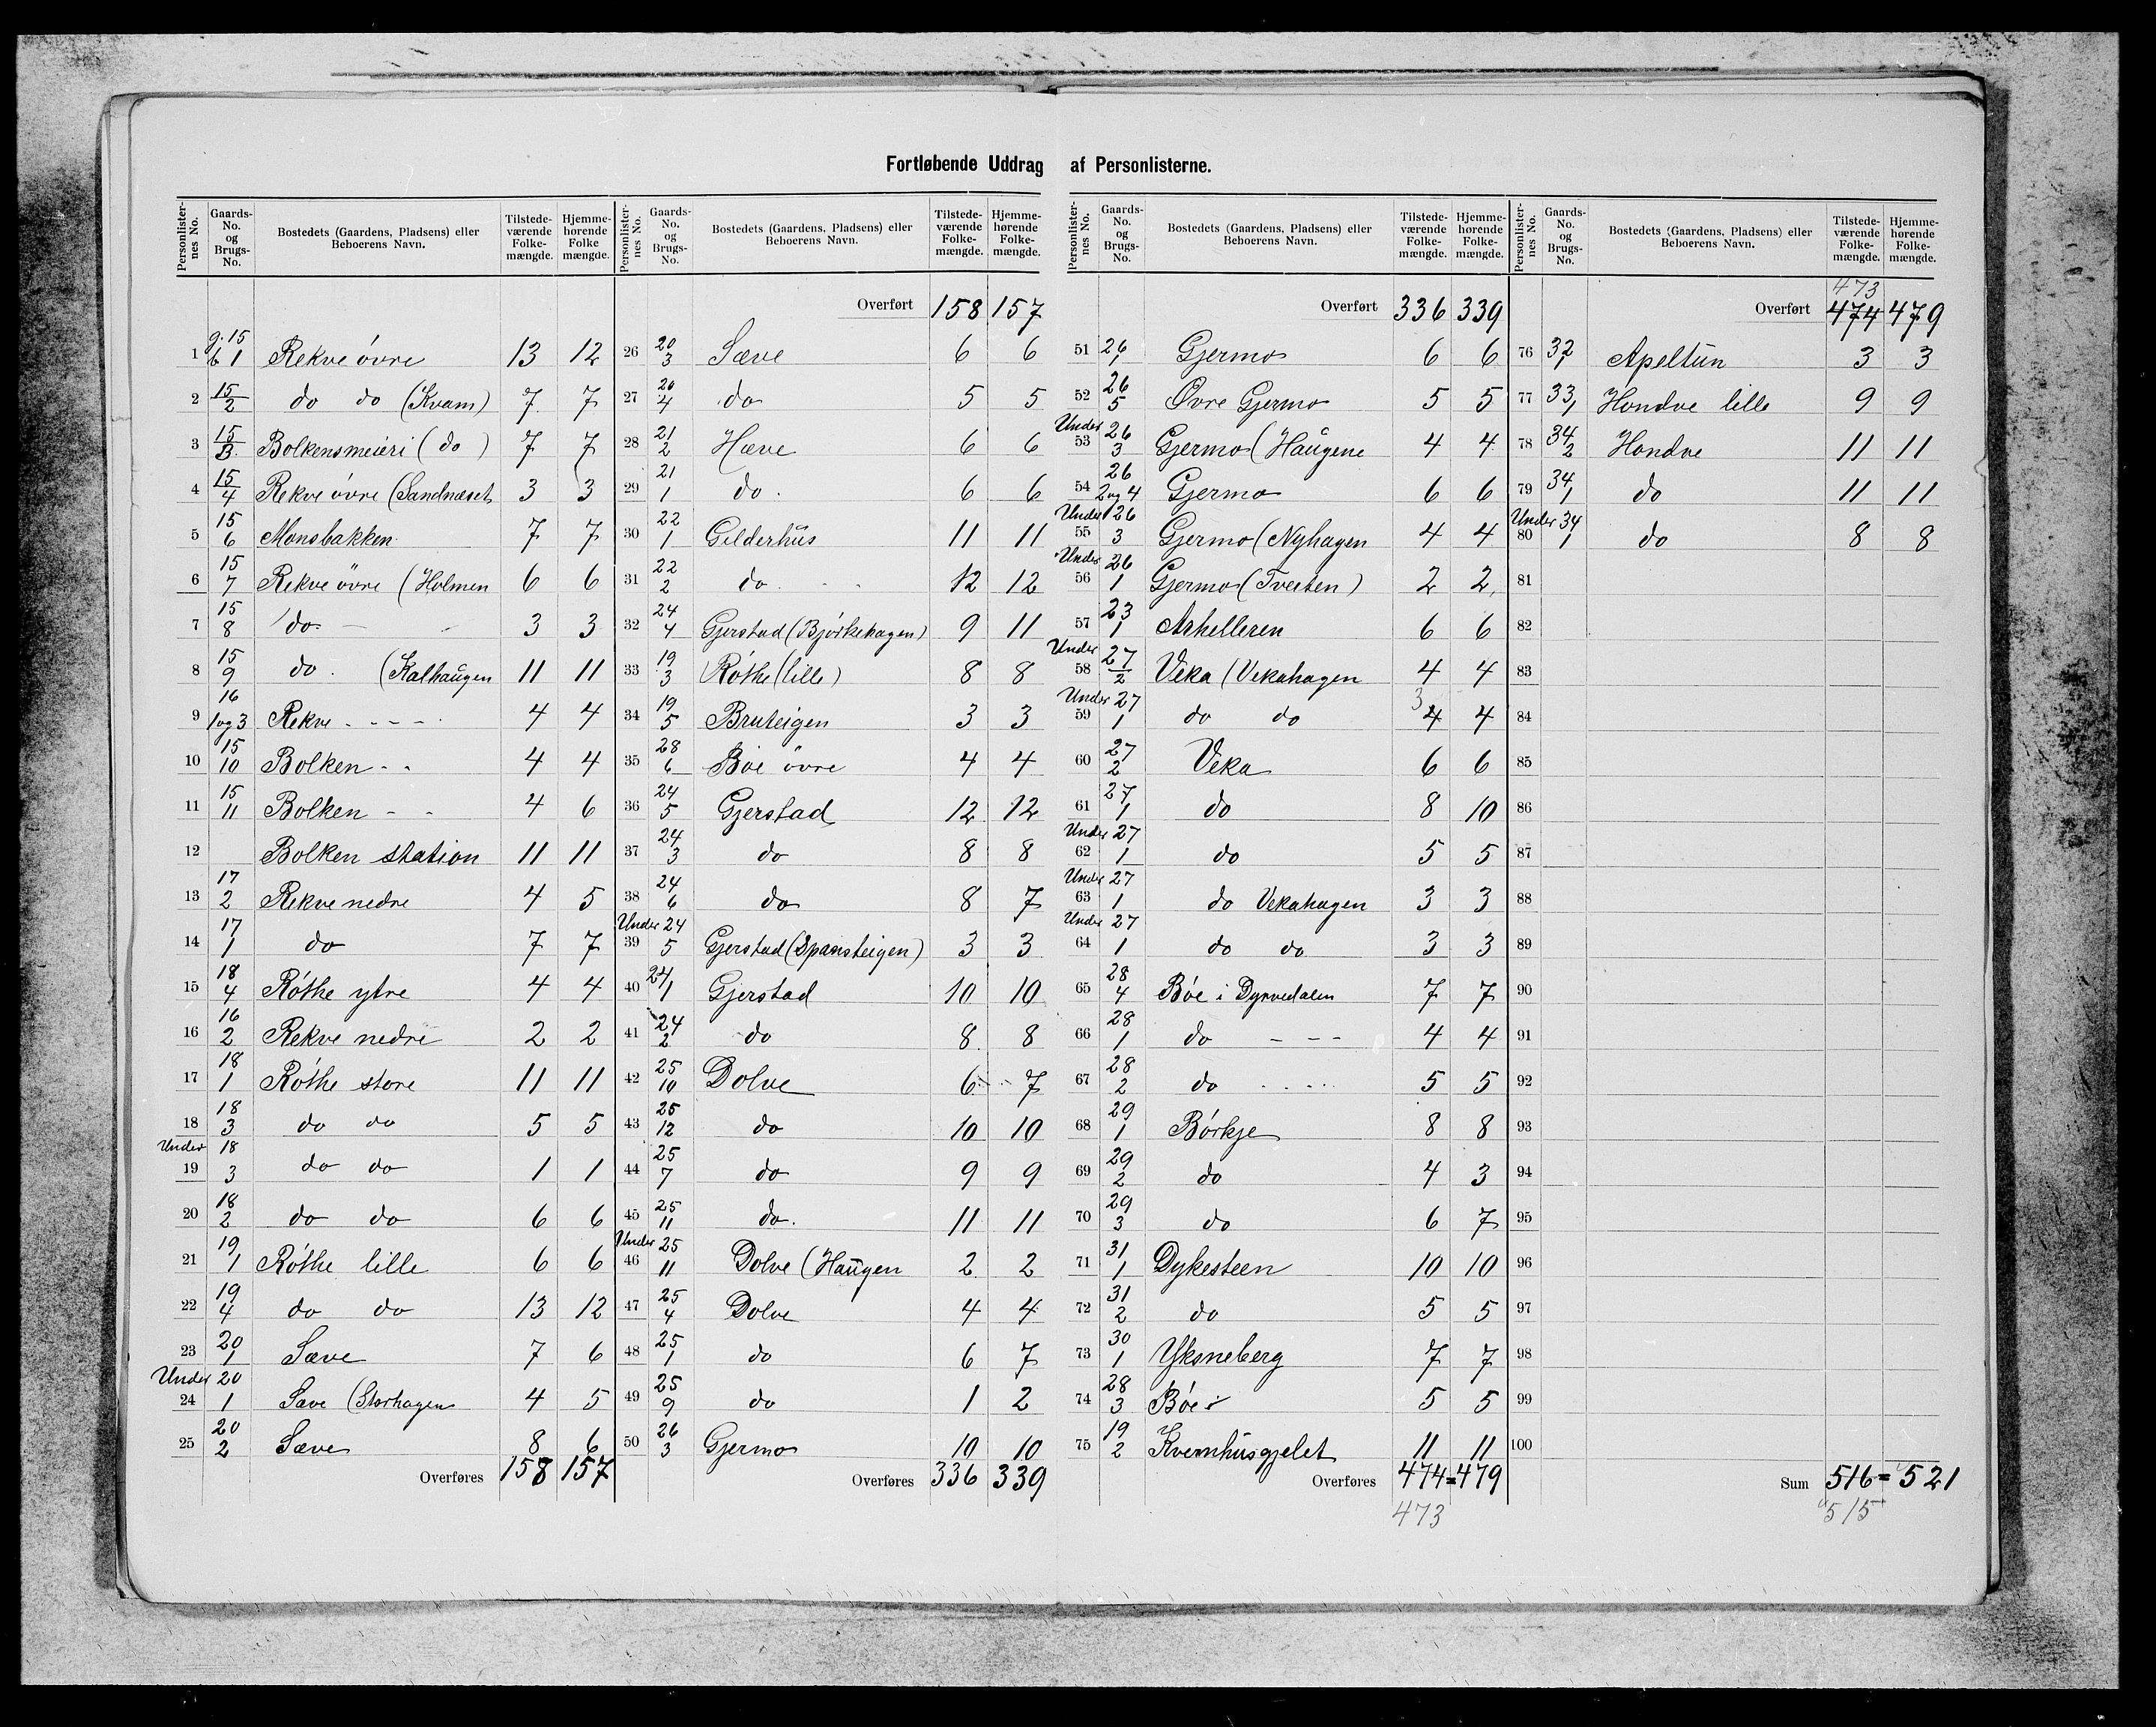 Fortløbende Uddrag af Personlisterne.
Personlister-nes No. | Gaards-No. og Brugs-No. | Bostedets (Gaardens, Pladsens) eller Beboerens Navn. | Tilstede-værende Folke-mængde. | Hjemme-hørende Folke mængde.
1 g. 15 b 1 Rekve övre 13 12
2 15/2 do do (Kvam) 7 7
3 15/3. Bolkensmeieri (do) 7 7
4 15/4 Rekve övre (Sandnæset 3 3
5 15/6 Monsbakken 7 7
6 15/7 Rekve övre (Holmen 6 6
7 15/8 do - 3 3
8 15/9 do. (Kalhaugen 11 11
9 16/1 og 3 Rekve - - - - 4 4
10 15/10 Bolken - - 4 4
11 15/11 Bolken - - 4 6
12 Bolken station 11 11
13 17/2 Rekve nedre 4 5
14 17/1 do 7 7
15 18/4 Röthe ytre 4 4
16 16/2 Rekve nedre 2 2
17 18/1 Röthe store 11 11
18 18/3 do do 5 5
Under 19 18/3 do do 1 1
20 18/2 do do 6 6
21 19/1 Röthe lille 6 6
22 19/4 do do 13 12
23 20/1 Sæve 7 6
Under 24 20/1 Sæve (Storhagen 4 5
25 20/2 Sæve 8 6
Overføres 158 157
Personlister-nes No. | Gaards-No. og Brugs-No. | Bostedets (Gaardens, Pladsens) eller Beboerens Navn. | Tilstede-værende Folke-mængde. | Hjemme-hørende Folke-mængde.
Overført 158 157
26 20/3 Sæve 6 6
27 20/4 do 5 5
28 21/2 Hæve 6 6
29 21/1 do. 6 6
30 22/1 Gilderhus 11 11
31 22/2 do. 12 12
32 24/4 Gjerstad (Bjørkehagen) 9 11
33 19/3 Röthe (lille) 8 8
34 19/5 Bruteigen 3 3
35 28/6 Böe övre 4 4
36 24/5 Gjerstad 12 12
37 24/3 do 8 8
38 24/6 do 8 7
Under 39 24/5 Gjerstad (Spansteigen) 3 3
40 24/1 Gjerstad 10 10
41 24/2 do 8 8
42 25/10 Dolve 6 7
43 25/12 do 10 10
44 25/7 do 9 9
45 25/11 do. 11 11
Under 46 25/11 Dolve (Haugen 2 2
47 25/4 Dolve 4 4
48 25/1 do 6 7
49 25/9 do 1 2
50 26/3 Gjermo 10 10
Overføres 336 339
Personlister-nes No. | Gaards-No. og Brugs-No. | Bostedets (Gaardens, Pladsens) eller Beboerens Navn. | Tilstede-værende Folke-mængde. | Hjemme-hørende Folke-mængde.
Overført 336 339
51 26/1 Gjermo 6 6
52 26/5 Övre Gjermo 5 5
Under 53 26/3 Gjermo (Haugene 4 4
54 26/2 og 4 Gjermo 6 6
Under 55 26/3 Gjermo (Nyhagen 4 4
Under 56 26/1 Gjermo (Tveiten) 2 2
57 23/1 Arhelleren 6 6
Under 58 27/2 Veka (Vekahagen 4 4
Under 59 27/1 do do 3 4 4
60 27/2 Veka 6 6
61 27/1 do 8 10
Under 62 27/1 do 5 5
Under 63 27/1 do Vekahagen 3 3
Under 64 27/1 do do 3 3
65 28/4 Böe i Dyrvedalen 7 7
66 28/1 do - - - 4 4
67 28/2 do . . . . 5 5
68 29/1 Börkje 8 8
69 29/2 do 4 3
70 29/3 do 6 7
71 31/1 Dykesteen 10 10
72 31/2 do 5 5
73 30/1 Yksneberg 7 7
74 28/3 Böe 5 5
75 19/2 Kvernhusgjelet 11 11
Overføres 474 = 479
473
Personlister-nes No. | Gaards-No. og Brugs-No. | Bostedets (Gaardens, Pladsens) eller Beboerens Navn. | Tilstede-værende Folke-mængde. | Hjemme-hørende Folke-mængde.
473
Overført 474 479
76 32/1 Apeltun 3 3
77 33/1 Hondve lille 9 9
78 34/2 Hondve 11 11
79 34/1 do 11 11
Under 80 34/1 do 8 8
81
82
83
84
85
86
87
88
89
90
91
92
93
94
95
96
97
98
99
100
Sum 516 = 521
515